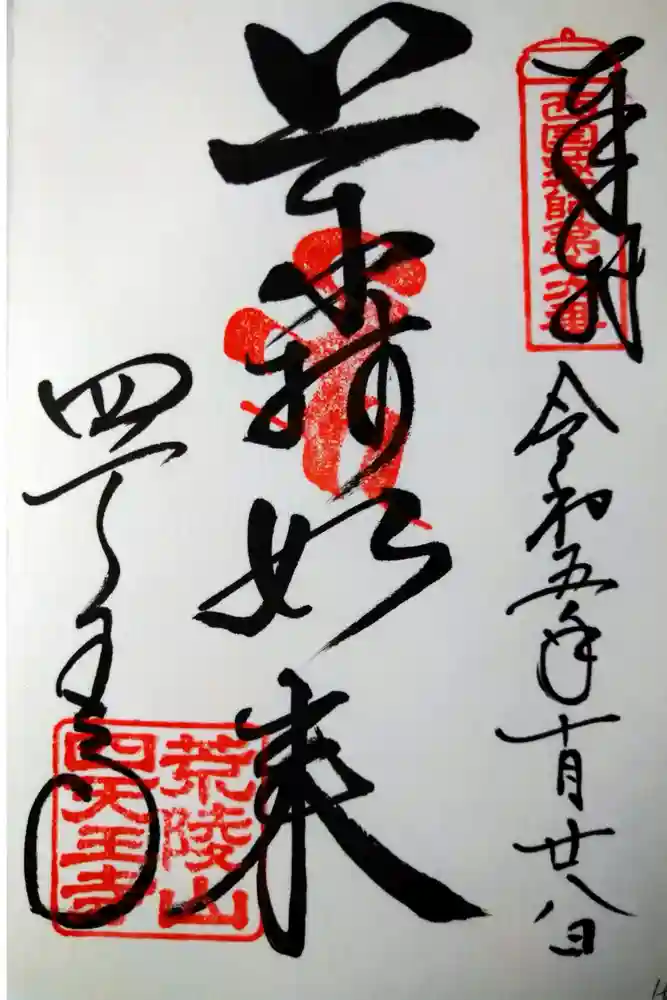 奉拝
西國薬師第十六番
令和五年十月廿八日
薬師如来
四天王寺
荒陵山
四天王寺